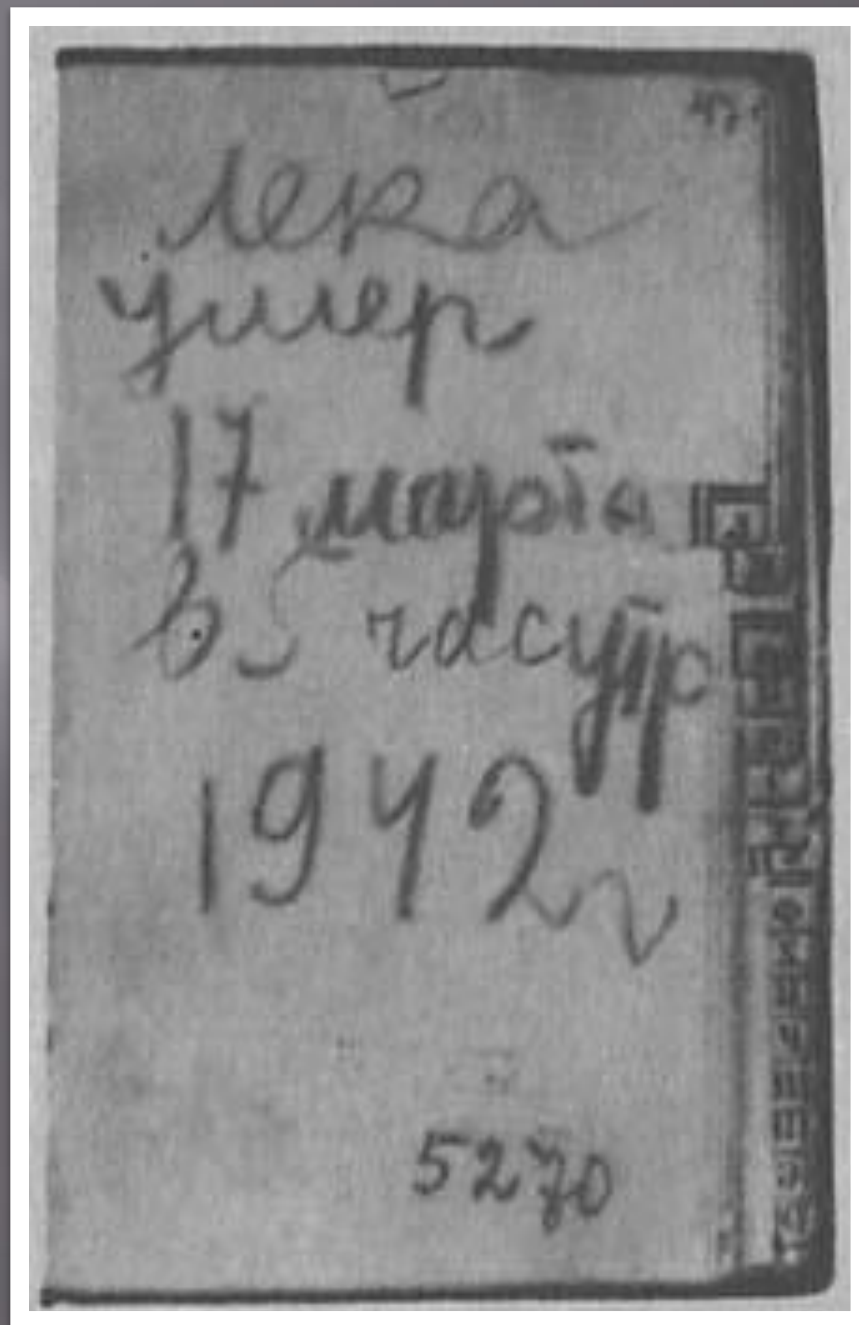 47
Лека
умер
17 марта
в часутр
1942 г
5270